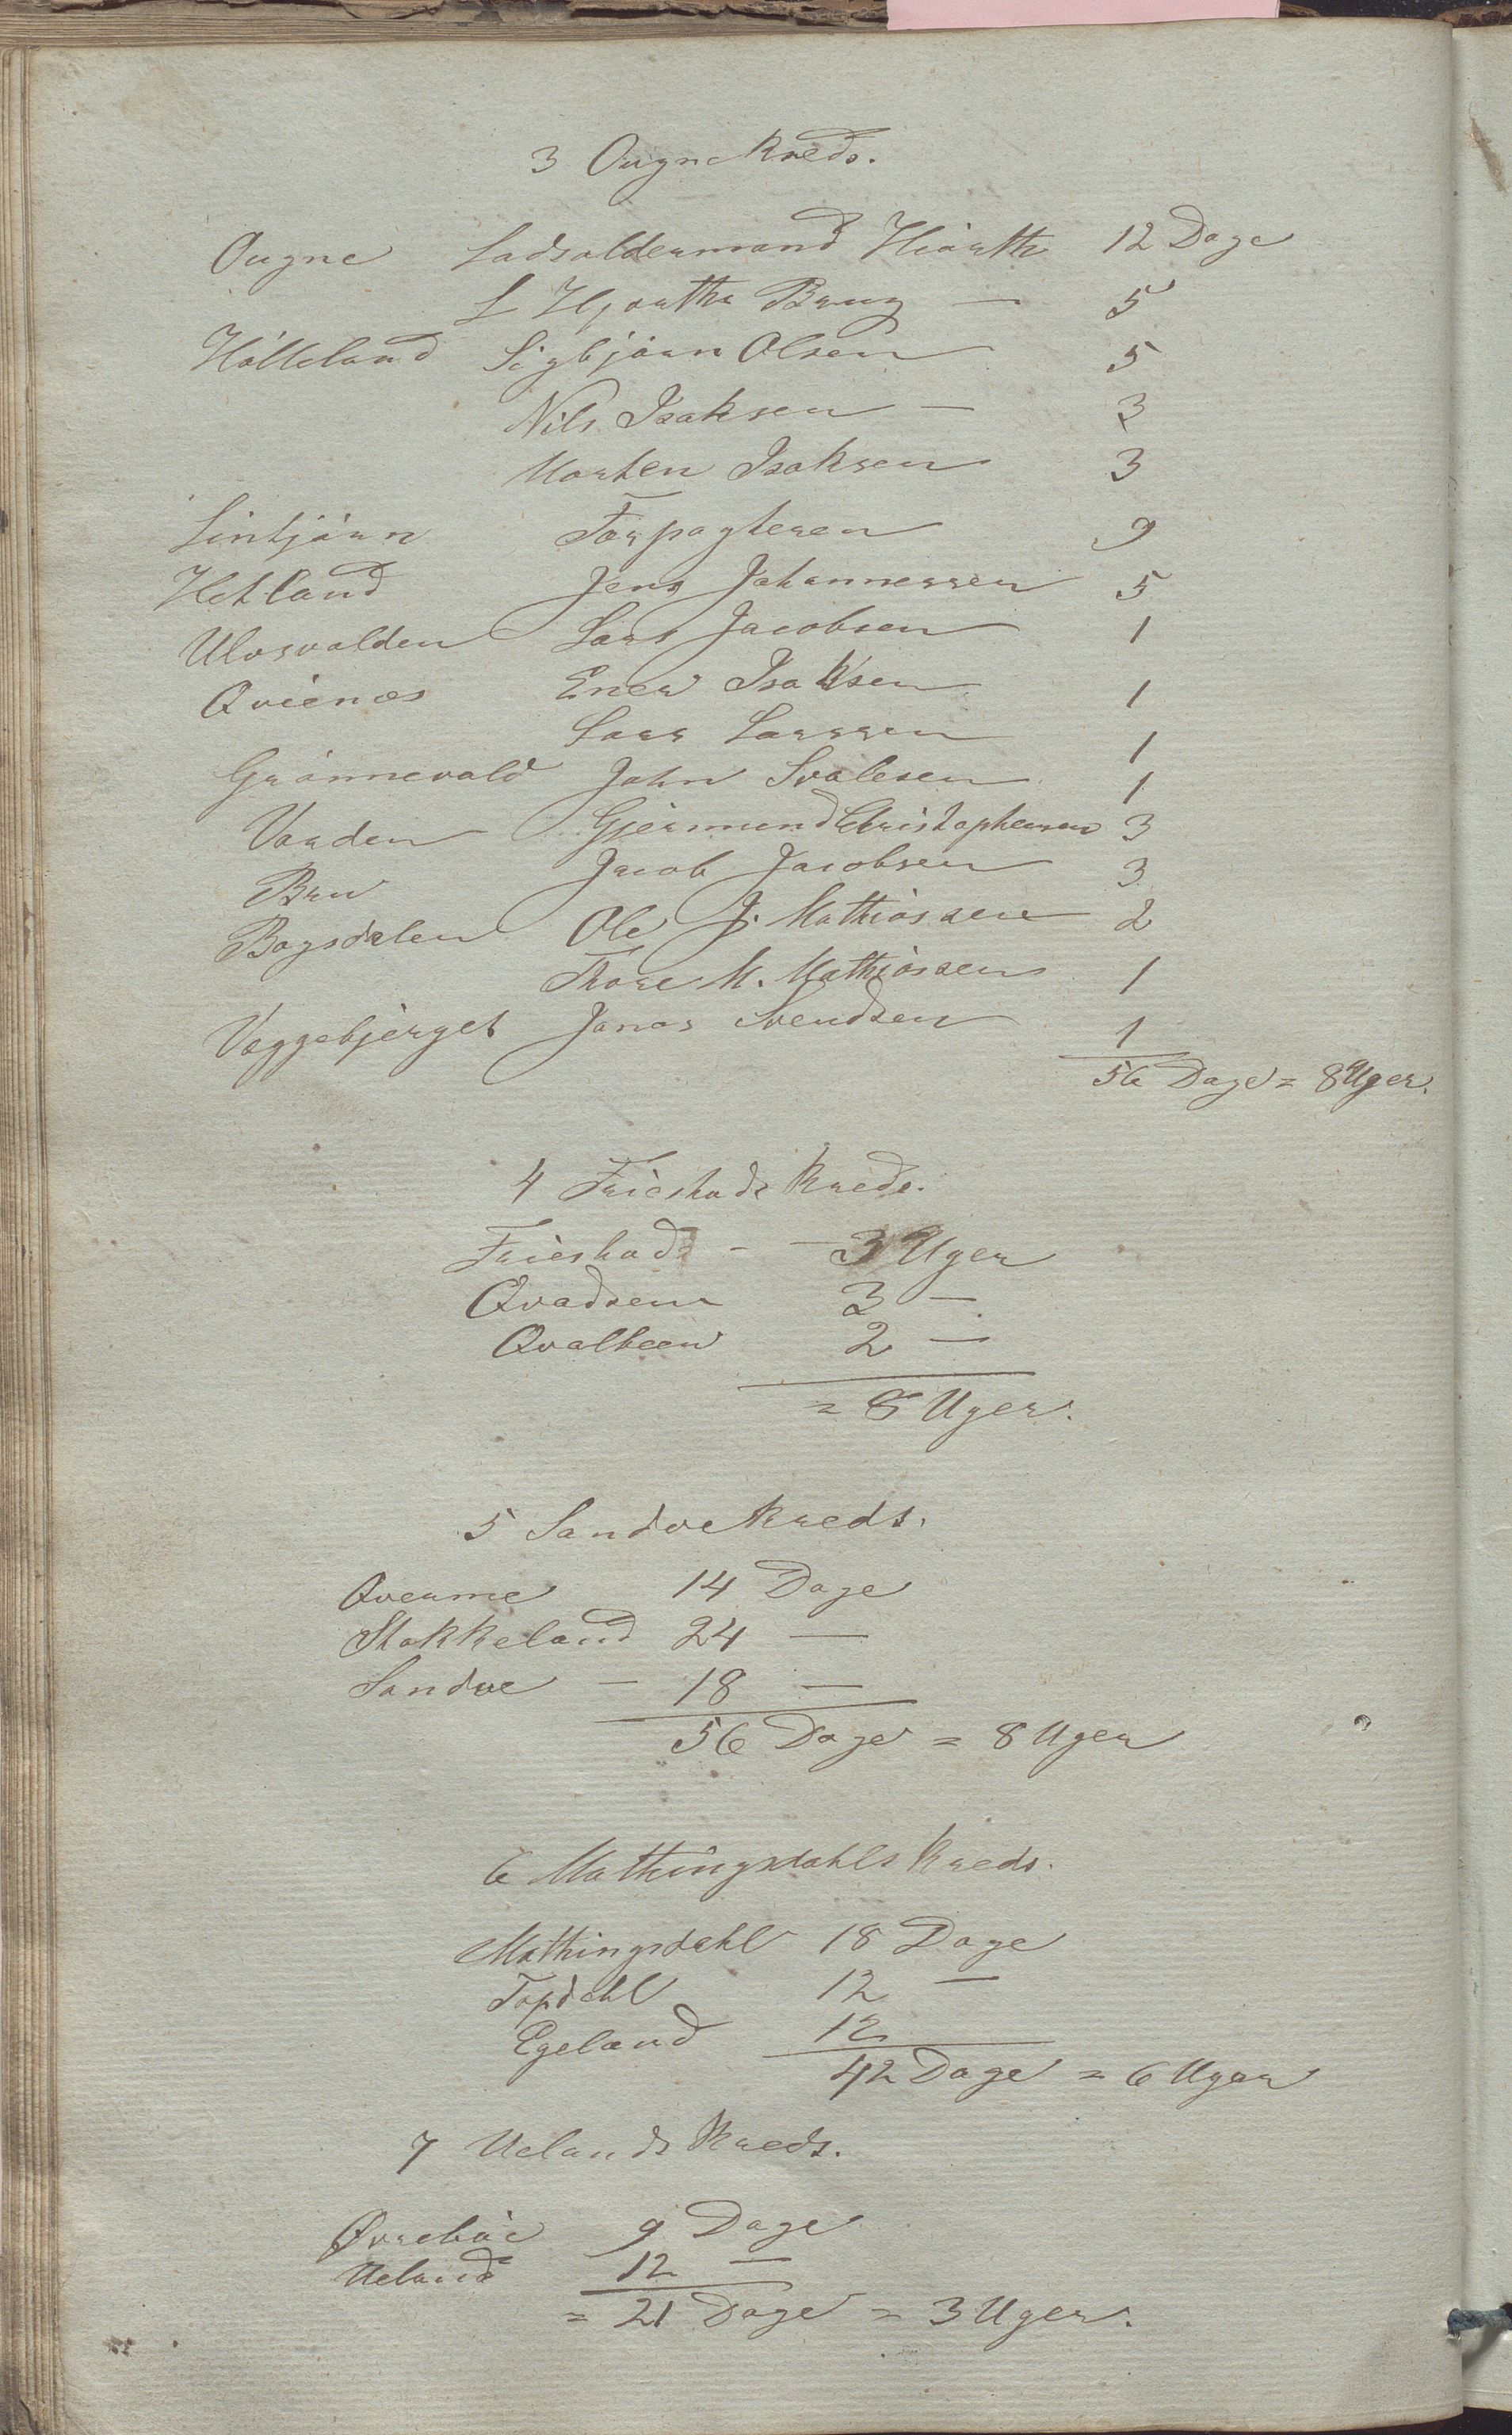 3 Ougne Kreds.
Ougne Ladsoldermand Hiorth 12 Dage
L Hjorths Brug — 5
Hölleland Sigbjörn Olsen 5
Nils Isaksen — 3
Morten Isaksen 3
Lintjörn Forpagteren 9
Hetland Jens Johannessen 5
Ulvsvolden Lars Jacobsen 1
Qvienæs Ener Isaksen 1
Lars Larssen 1
Grönnevold John Svalesen 1
Varden Gjermund Christophersen 3
Bru Jacob Jacobsen 3
Bogsdalen Ole J. Mathiassen 2
Thore M. Mathiassen 1
Vaggebjerget Jonas Svendsen 1
56 Dage = 8 Uger.
4 Friestads Kreds.
Friestad - - 3 Uger
Qvadsem 3 —
Qvalbeen 2 —
= 8 Uger.
5 Sandve Kreds.
Qverme 14 Dage
Stokkeland 24 —
Sandve — 18 —
56 Dage = 8 Uger
6 Mathingsdahls Kreds.
Mathingsdahl 18 Dage
Topdahl 12 —
Egeland 12
42 Dage = 6 Uger
7 Uelands Kreds.
Øvreböe 9 Dage
Ueland 12 —
= 21 Dage = 3 Uger.